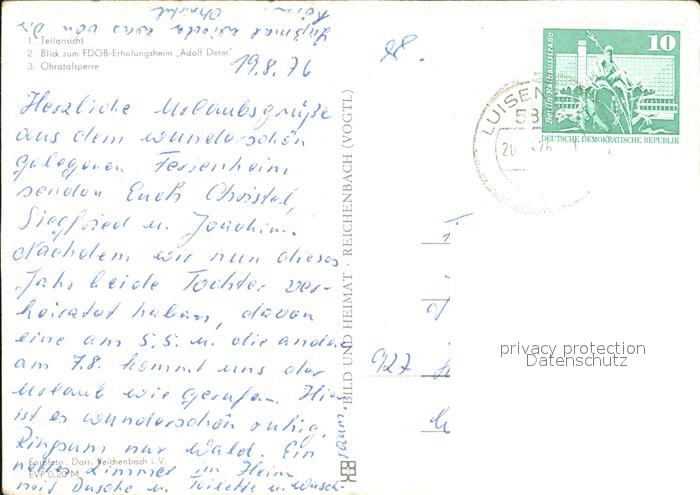 1. Teilansicht
2. Blick zum FDGB-Erholungsheim „Adolf Deter"
3. Ohratalsperre
19.8.76
28.
Herzliche Urlaubsgrüße
aus dem wunderschön
gelegenen Ferienheim
senden Euch Christel,
Siegfried u. Joachim.
Nachdem wir nun dieses
Jahr beide Töchter ver-
heiratet haben, davon
eine am 5.5. u. die andere
am 7.8. kommt uns der
Urlaub wie gerufen. Hier
ist es wunderschön ruhig.
Ringsum nur Wald. Ein
nettes Zimmer im Heim
mit Dusche u. Toilette u. Wasch-
raum.
Farbfoto: Darr, Reichenbach i. V.
EVP 0,20 M
BILD UND HEIMAT · REICHENBACH (VOGTL)
LUISEN
58
20
76
10
Berlin Rathausstraße
DEUTSCHE DEMOKRATISCHE REPUBLIK
927
privacy protection
Datenschutz